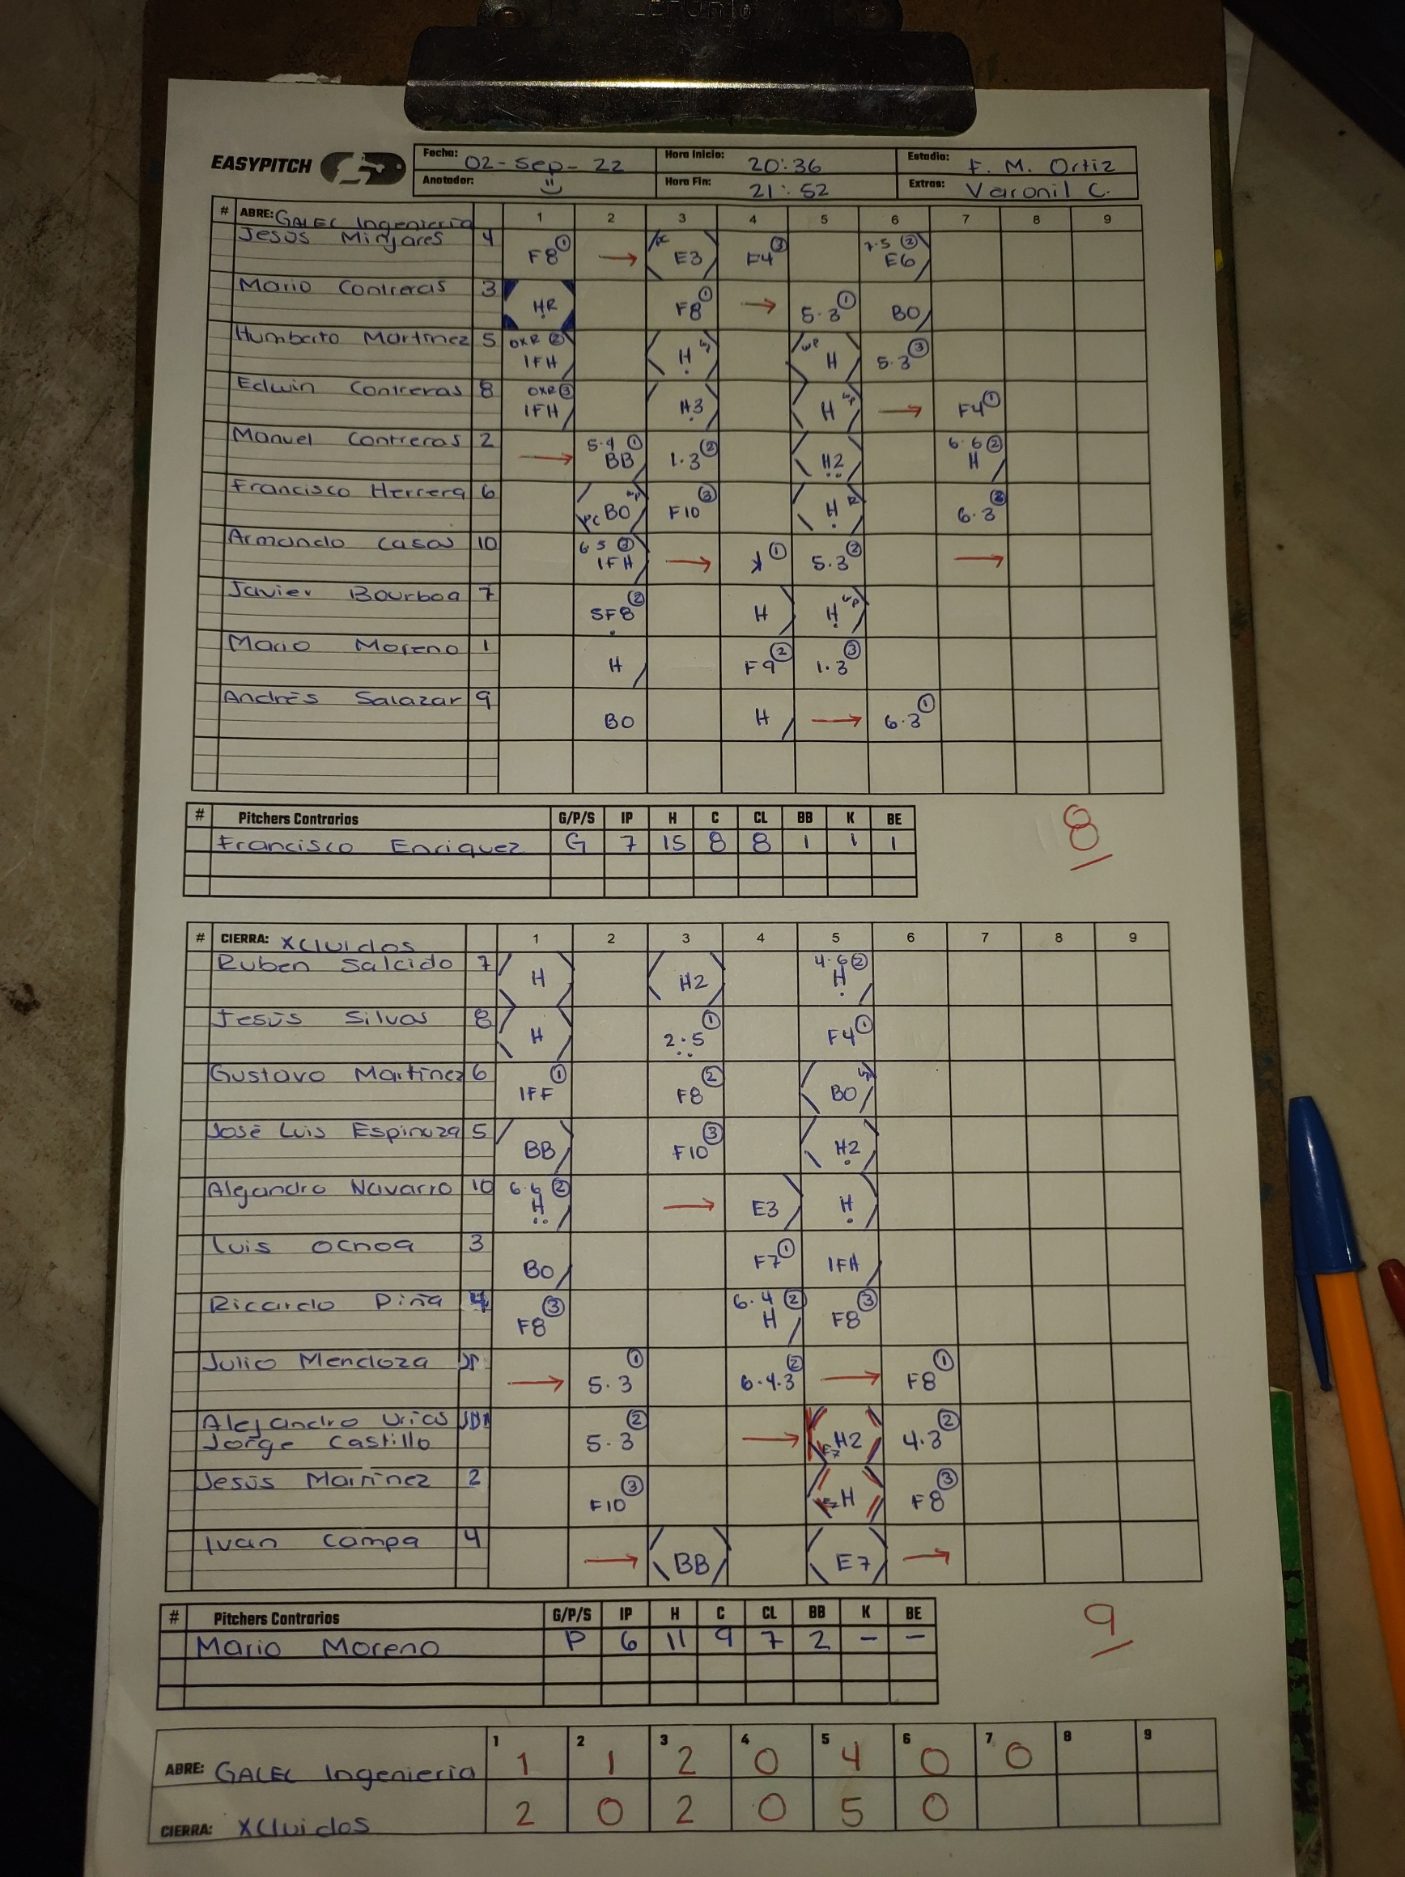 EASYPITCH
Fecha: 02-Sep-22 Hora Inicio: 20:36 Estadio: F. M. Ortiz
Anotador: Hora Fin: 21:52 Extras: Varonil C.
# ABRE: GALEC Ingenieria 1 2 3 4 5 6 7 8 9
Jesús Minjares 4 F8 ① → E3 F4 ③ 7-5 ② E6
Mario Contreras 3 HR F8 ① → 5-3 ① BO
Humberto Martinez 5 OXR ② IFH H H 5-3 ③
Edwin Contreras 8 OXR ③ IFH H3 H → F4 ①
Manuel Contreras 2 → 5-4 ① BB 1-3 ② H2 6-6 ② H
Francisco Herrera 6 BO F10 ③ H 6-3 ③
Armando Casas 10 6 5 ③ IFH → K ① 5-3 ② →
Javier Bourboa 7 SF8 ② H H
Mario Moreno 1 H F9 ② 1-3 ③
Andrés Salazar 9 BO H → 6-3 ①
# Pitchers Contrarios G/P/S IP H C CL BB K BE
Francisco Enriquez G 7 15 8 8 1 1 1
8
# CIERRA: XCluidos 1 2 3 4 5 6 7 8 9
Ruben Salcido 7 H H2 4-6 ② H
Jesús Silvas 8 H 2-5 ① F4 ①
Gustavo Martinez 6 IFF ① F8 ② BO
José Luis Espinoza 5 BB F10 ③ H2
Algandro Navarro 10 6-6 ② H → E3 H
Luis Ochoa 3 BO F7 ① IFH
Ricardo Piña F8 ③ 6-4 ② H F8 ③
Julio Mendoza → 5-3 ① 6-4-3 ② → F8 ①
Alejandro Urias
Jorge Castillo 5-3 ② → H2 4-3 ②
Jesús Martinez 2 F10 ③ H F8 ③
Ivan Campa 4 → BB E7 →
# Pitchers Contrarios G/P/S IP H C CL BB K BE
Mario Moreno P 6 11 9 7 2 - -
9
1 2 3 4 5 6 7 8 9
ABRE: GALEC Ingenieria 1 1 2 0 4 0 0
CIERRA: XCluidos 2 0 2 0 5 0